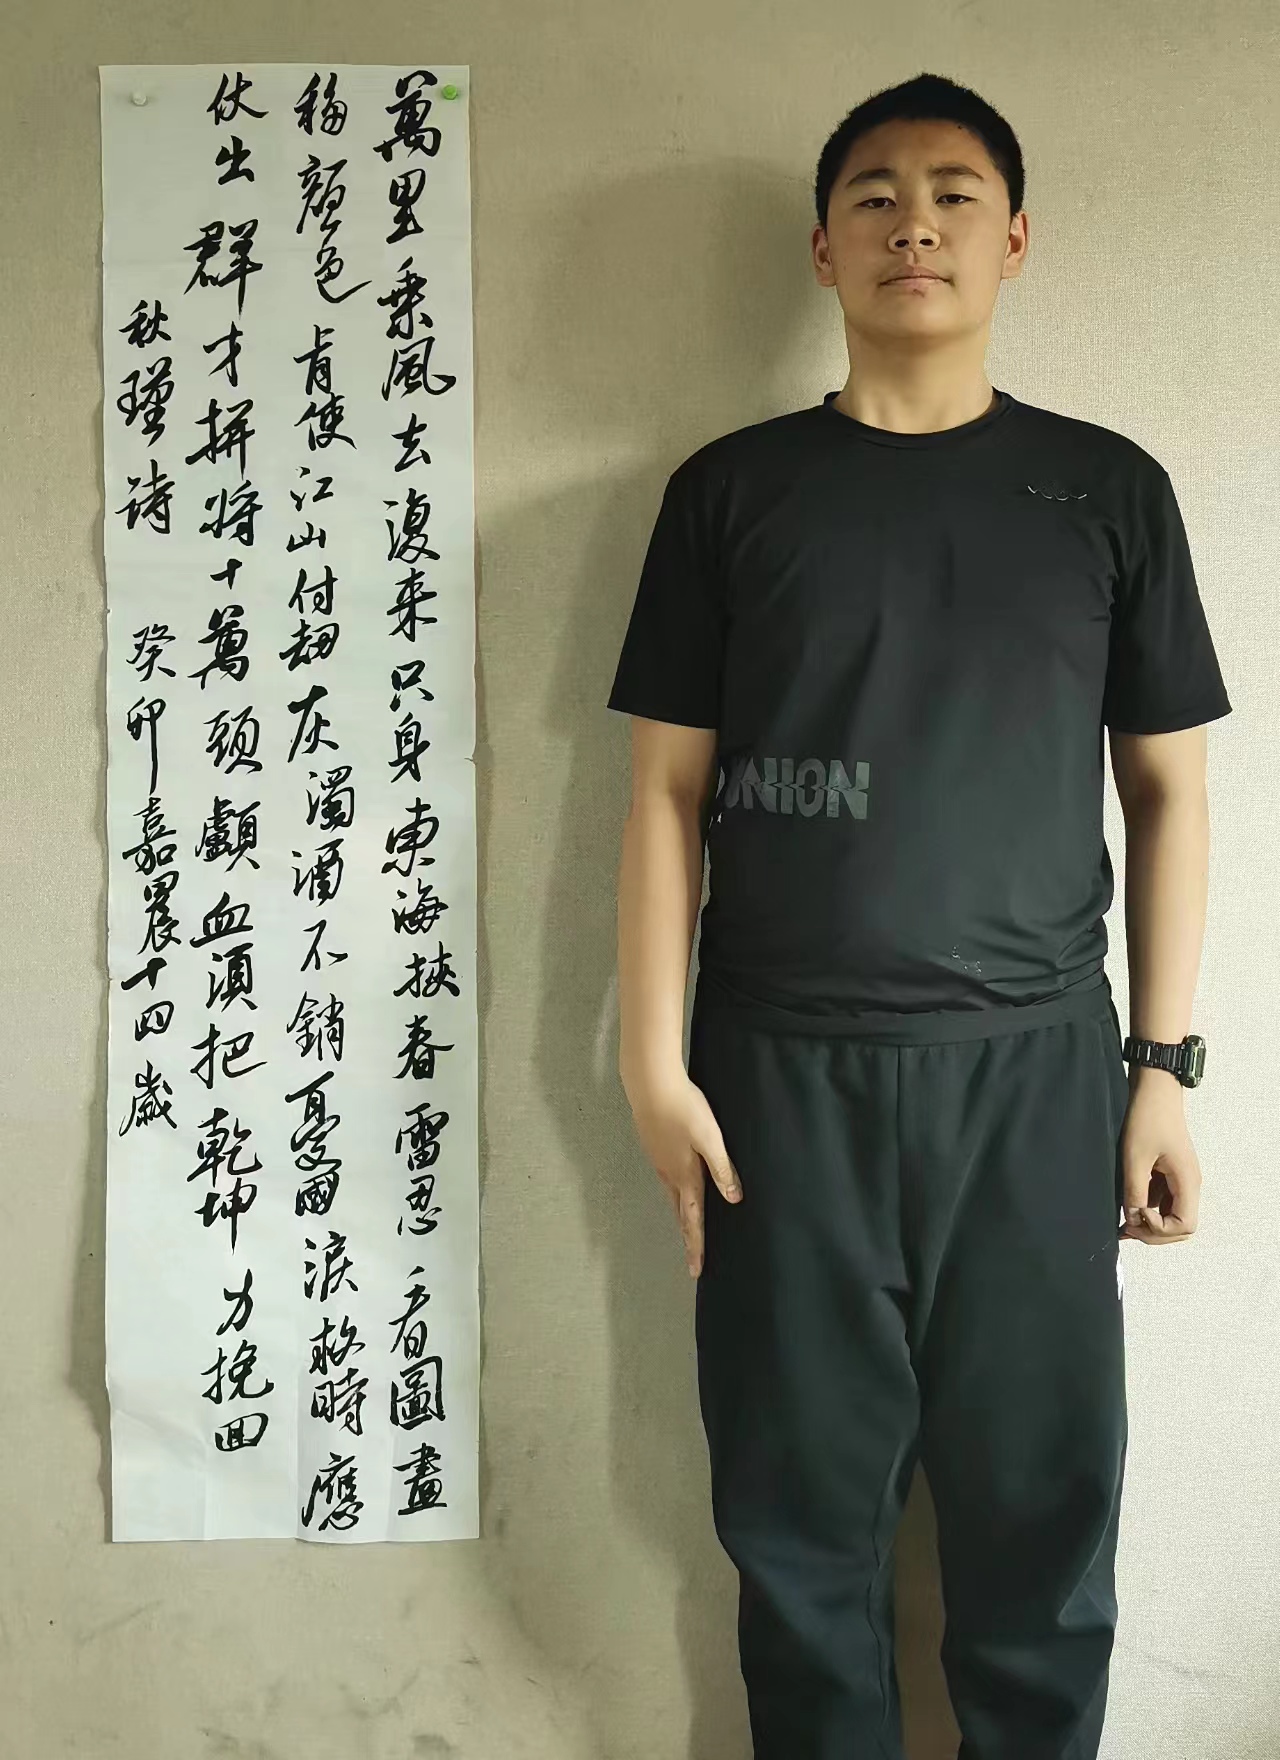 萬里乘風去復来只身東海挾春雷忍看圖畫
移顏色肯使江山付劫灰濁酒不銷憂國淚救時應
仗出群才拼將十萬頭顱血須把乾坤力挽回
秋瑾詩 癸卯嘉晨十四歲
UNION